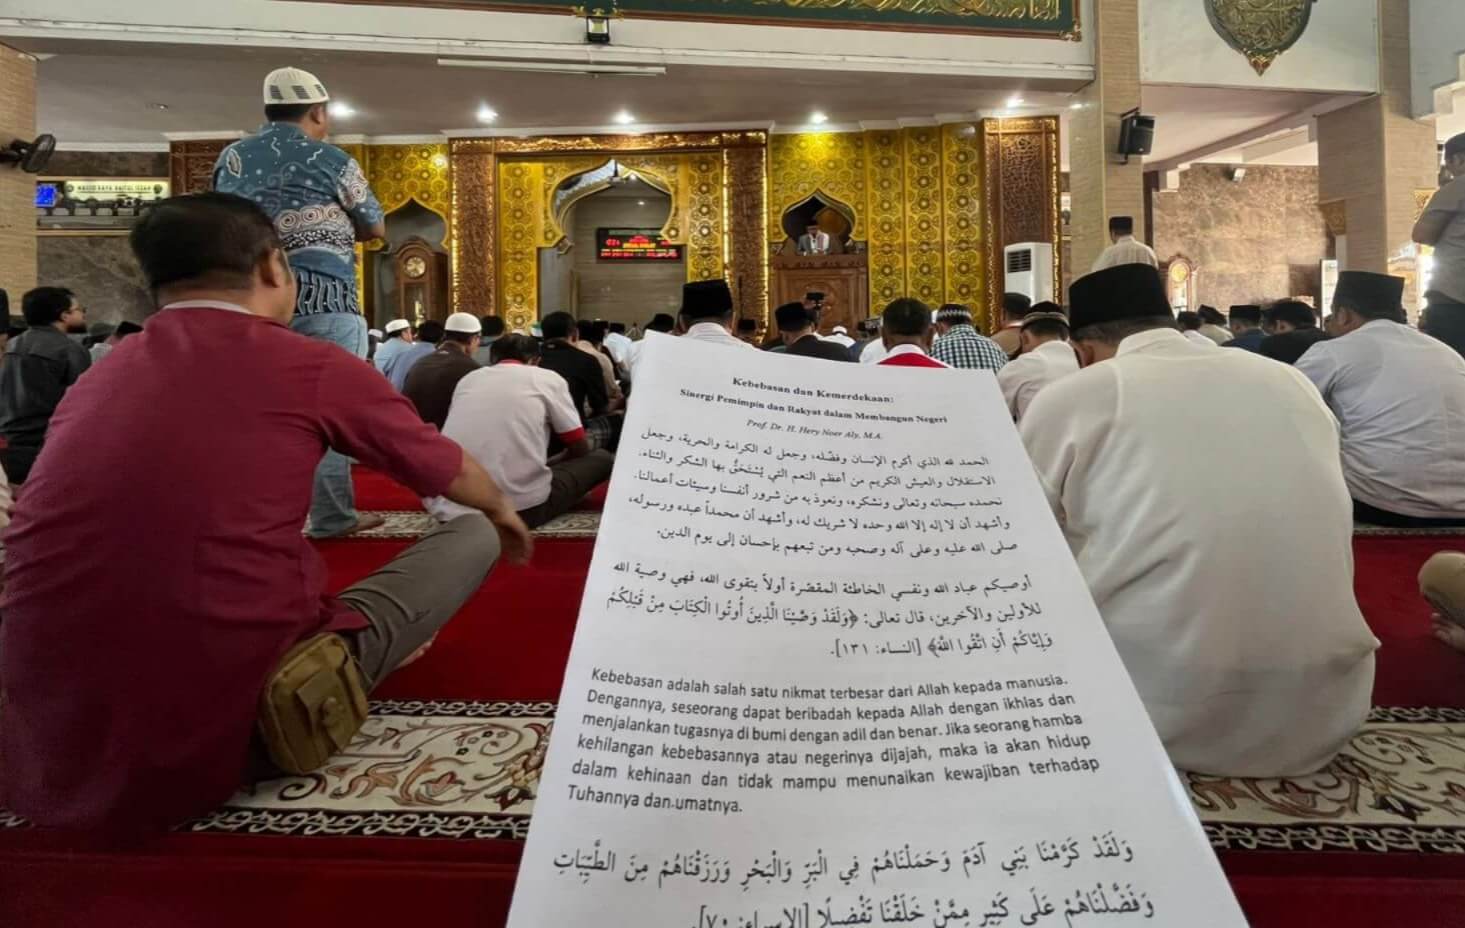 MASJID RAYA BAITUL IZZAH
Kebebasan dan Kemerdekaan:
Sinergi Pemimpin dan Rakyat dalam Membangun Negeri
Prof. Dr. H. Hery Noer Aly, M.A.
الحمد لله الذي أكرم الإنسان وفضّله، وجعل له الكرامة والحرية، وجعل
الاستقلال والعيش الكريم من أعظم النعم التي يُسْتَحَقُّ بها الشكر والثناء.
نحمده سبحانه وتعالى ونشكره، ونعوذ به من شرور أنفسنا وسيئات أعمالنا.
وأشهد أن لا إله إلا الله وحده لا شريك له، وأشهد أن محمداً عبده ورسوله،
صلى الله عليه وعلى آله وصحبه ومن تبعهم بإحسان إلى يوم الدين.
أوصيكم عباد الله ونفسي الخاطئة المقصّرة أولاً بتقوى الله، فهي وصية الله
للأولين والآخرين، قال تعالى: ﴿وَلَقَدْ وَصَّيْنَا الَّذِينَ أُوتُوا الْكِتَابَ مِنْ قَبْلِكُمْ
وَإِيَّاكُمْ أَنِ اتَّقُوا اللَّهَ﴾ [النساء: ١٣١].
Kebebasan adalah salah satu nikmat terbesar dari Allah kepada manusia.
Dengannya, seseorang dapat beribadah kepada Allah dengan ikhlas dan
menjalankan tugasnya di bumi dengan adil dan benar. Jika seorang hamba
kehilangan kebebasannya atau negerinya dijajah, maka ia akan hidup
dalam kehinaan dan tidak mampu menunaikan kewajiban terhadap
Tuhannya dan umatnya.
وَلَقَدْ كَرَّمْنَا بَنِي آدَمَ وَحَمَلْنَاهُمْ فِي الْبَرِّ وَالْبَحْرِ وَرَزَقْنَاهُمْ مِنَ الطَّيِّبَاتِ
وَفَضَّلْنَاهُمْ عَلَى كَثِيرٍ مِمَّنْ خَلَقْنَا تَفْضِيلًا [الإسراء: ٧٠].